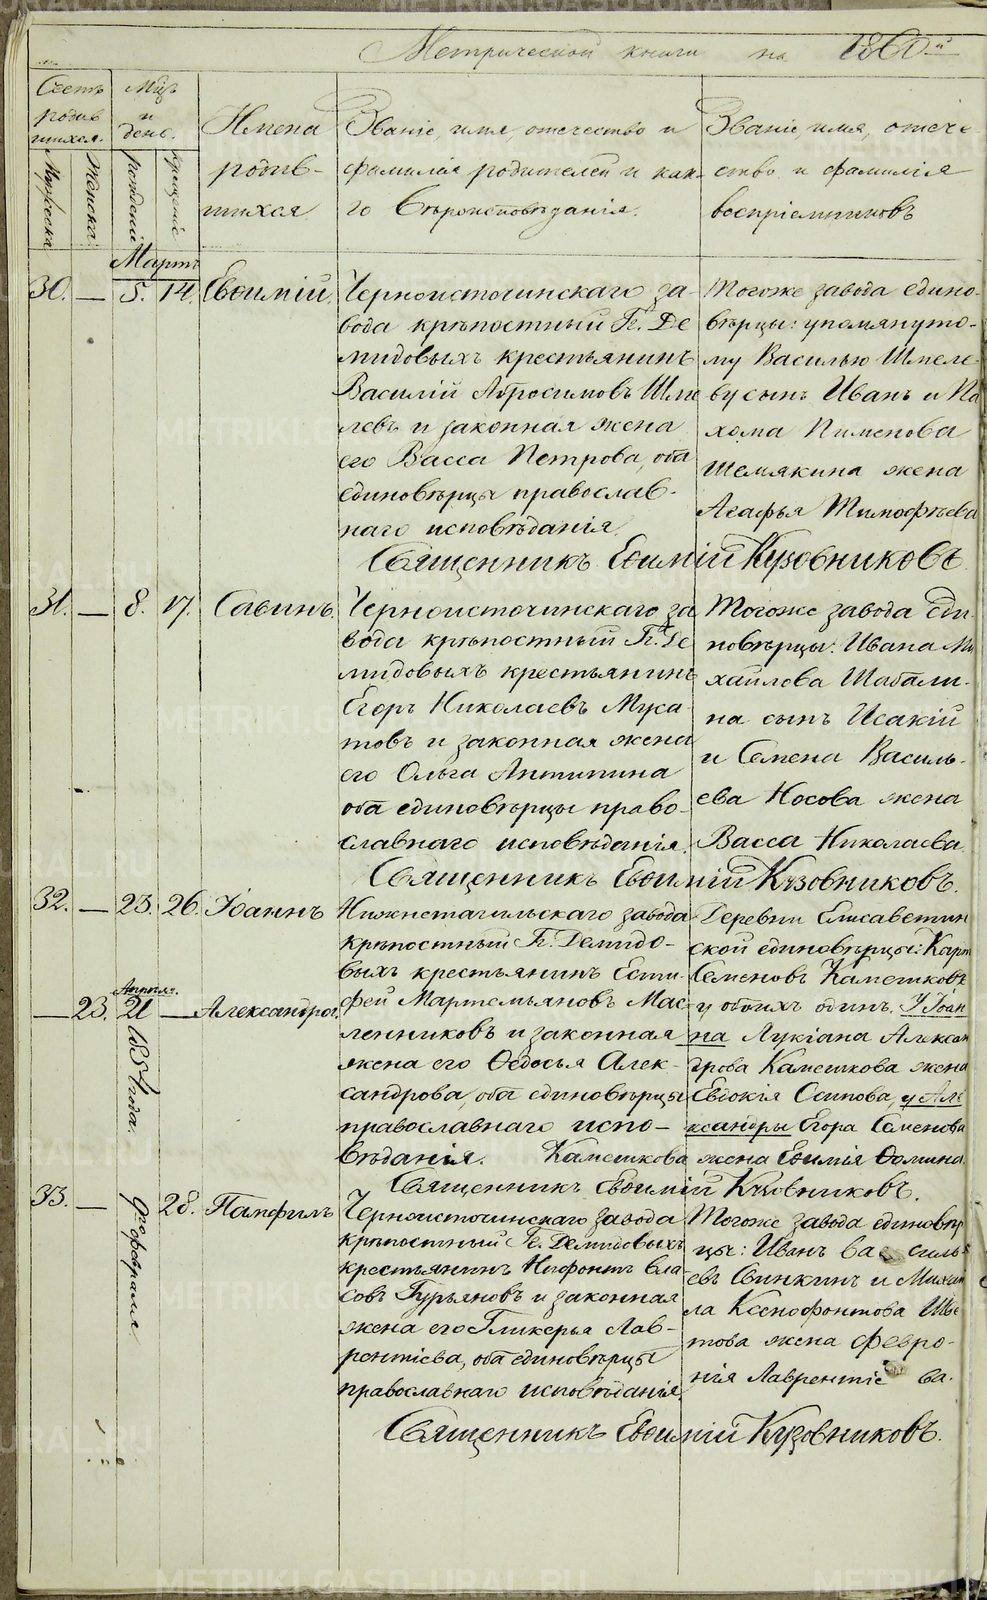 Метрической книги на 1860й
Счетъ родив шихся.
Мужеска
Женска
Мцъ и день.
рожденія
крещенія
Имена родив-
шихся
Званіе, имя, отчество и
фамилія родителей и как-
го Вѣроисповѣданія.
Званіе, имя, отече-
ство и фамилія
воспріемниковъ
Мартъ
30. — 5. 14. Евѳимій.
Черноисточинскаго за-
вода крѣпостный Гг. Де
мидовыхъ крестьянинъ
Василій Абросимовъ Шме
левъ и законная жена
его Васса Петрова, оба
единовѣрцы православ-
наго исповѣданія.
Тогоже завода едино-
вѣрцы: упомянуто-
му Василью Шмеле-
ву сынъ Иванъ и Па
хома Пименова
Шемякина жена
Агафья Тимофѣева
Священникъ Евѳимій Кузовниковъ.
31. — 8. 17. Савинъ.
Черноисточинскаго за
вода крѣпостный Гг. Де
мидовыхъ крестьянинъ
Егоръ Николаевъ Муса-
товъ и законная жена
его Ольга Антипина
оба единовѣрцы право-
славнаго исповѣданія.
Тогоже завода еди-
новѣрцы: Ивана Ми
хайлова Шабали-
на сынъ Исакій
и Семена Василь-
ева Носова жена
Васса Николаева.
Священникъ Евѳимій Кузовниковъ.
32. — 23. 26. Іоаннъ
Апрѣль.
— 23. 21 — Александра.
1854 года.
Нижнетагильскаго завода
крѣпостный Гг. Демидо-
выхъ крестьянинъ Ести-
фей Мартемьяновъ Мас
ленниковъ и законная
жена его Ѳедосья Алек-
сандрова, оба единовѣрцы
православнаго испо-
вѣданія.
Деревни Елисаветин
ской единовѣрцы: Карп
Семеновъ Камешковъ
у обоихъ одинъ. У Іоан
на Лукіана Алексан
дрова Камешкова жена
Евдокія Осипова, у Але
ксандры Егора Семенова
Камешкова жена Евѳимія Ѳомина
Священникъ Евѳимій Кузовниковъ.
33. — 9го февраля 28. Панфилъ
Черноисточинскаго завода
крѣпостный Гг. Демидовыхъ
крестьянинъ Нифонтъ Вла-
совъ Гурьяновъ и законная
жена его Гликерья Лав-
рентіева, оба единовѣрцы
православнаго исповѣданія
Тогоже завода единовѣр
цы: Иванъ Ва силь-
евъ Свинкинъ и Михаи
ла Ксенофонтова Шве
това жена Февро-
нія Лаврентіе ва.
Священникъ Евѳимій Кузовниковъ.
METRIKI.GASO-URAL.RU